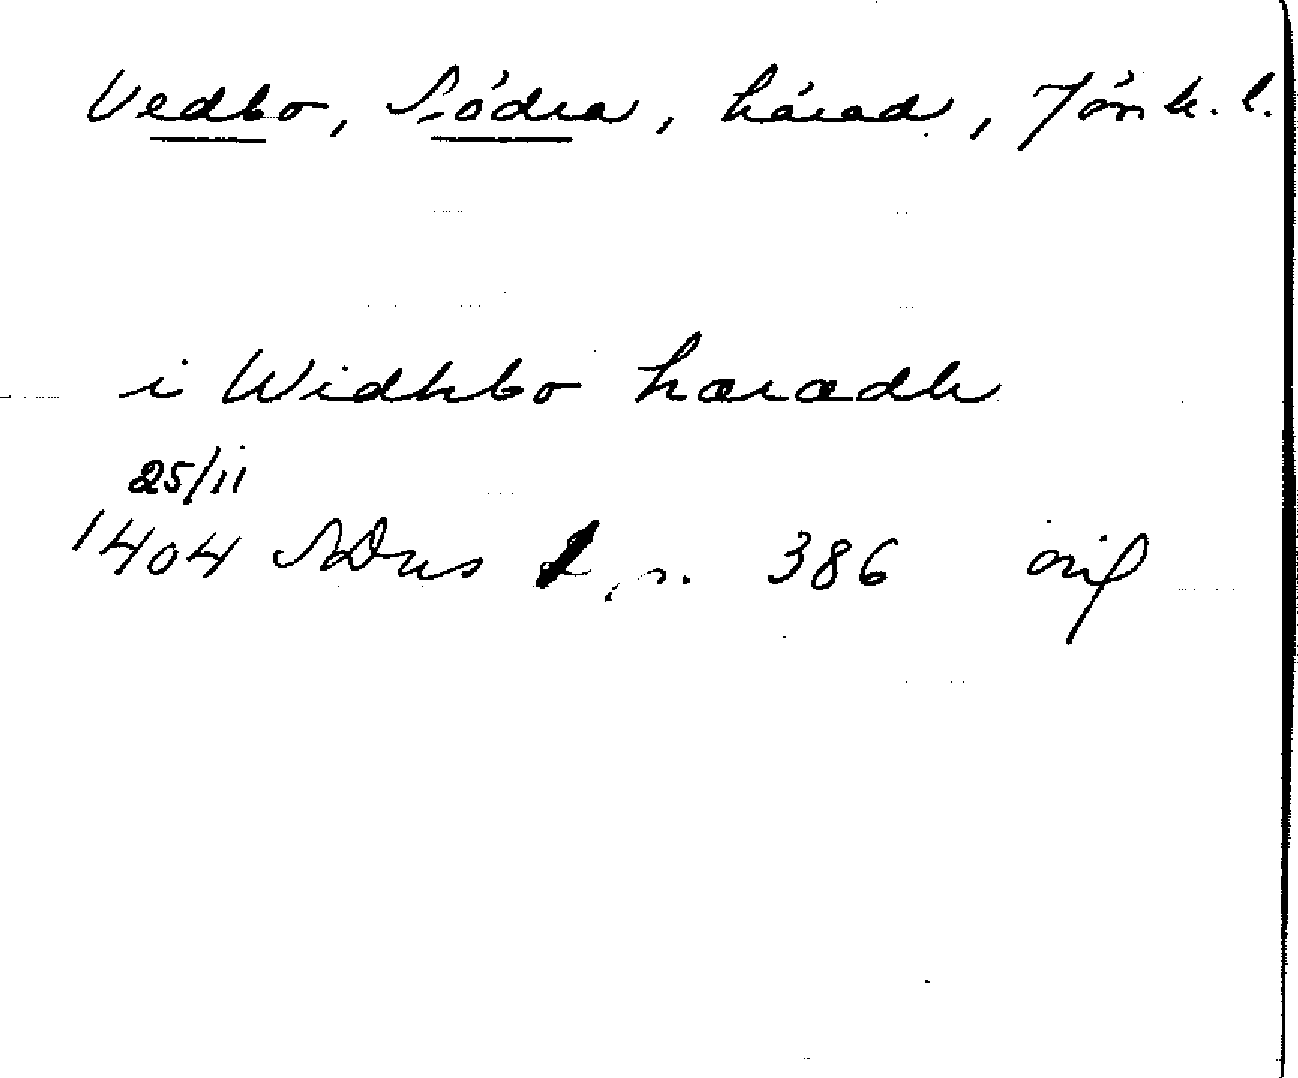 Vedbo, Södra, härad, Jönk. l.
i Widhbo haradh
25/11
1404 SDns 1, s. 386 orig